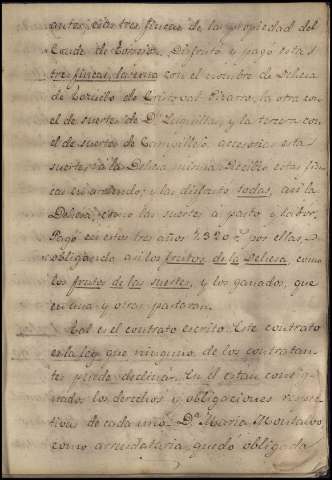 antes, eran tres fincas de la propiedad del
Conde de Disfrutó y pagó estas
tres fincas, la una con el nombre de Dehesa
de de Cristoval Bizarro, la otra con
el de suertes de Dª y la tercera con
el de suertes de Campillejo, accesorias estas
suertes á la Dehesa misma. Recibió estas fin
cas en arriendo, y las disfrutó todas, así la
Dehesa, como las suertes á pasto y labor.
Pagó en estos tres años 7.320 rˢ por ellas
obligando así los frutos de la Dehesa, como
los frutos de las suertes, y los ganados, que
en una y otras pastaran.
Tal es el contrato escrito. Este contrato
es la ley que ninguno de los contratan
tes puede declinar. En él están consig
nados los derechos y obligaciones respec
tivas de cada uno. Dª Maria Montalvo
como arrendataria quedó obligada